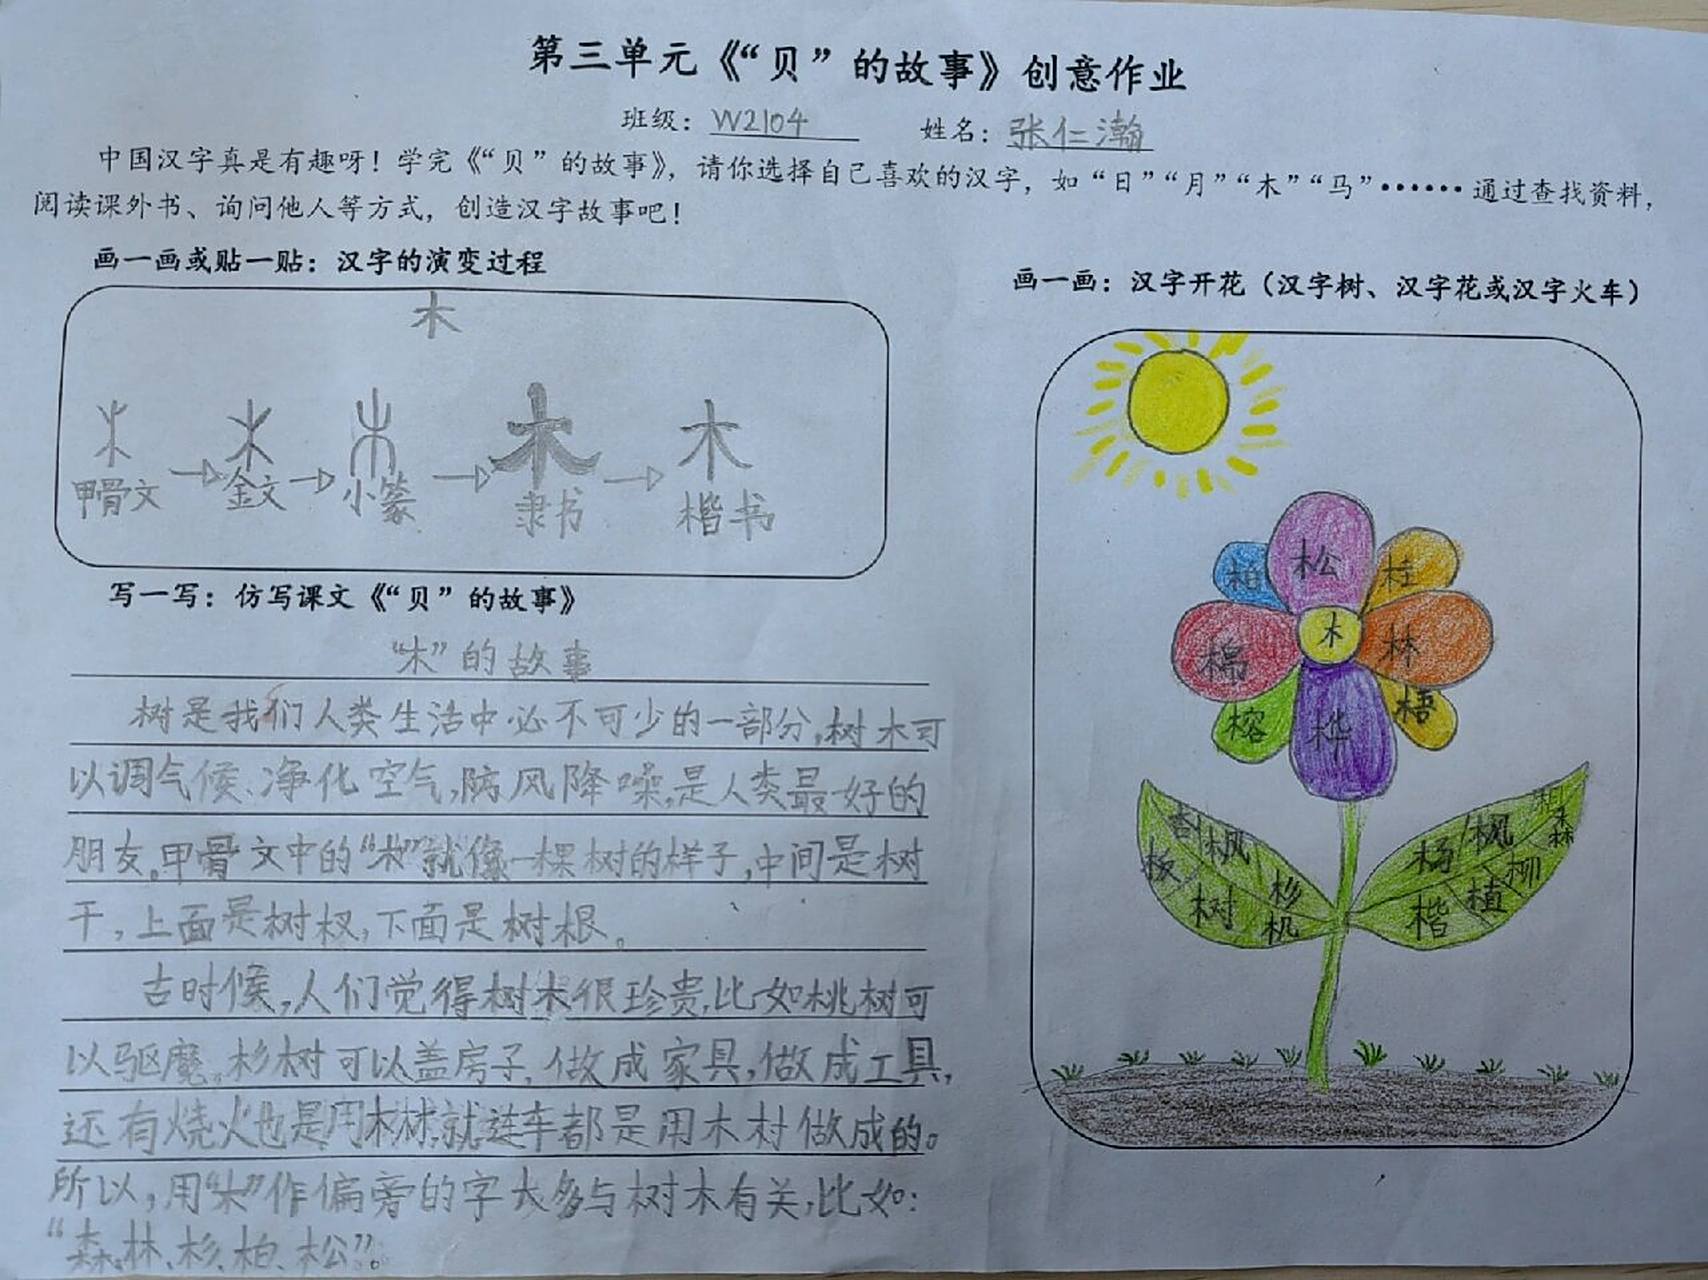 第三单元《“贝”的故事》创意作业
班级：W2104 姓名：张仁瀚
中国汉字真是有趣呀！学完《“贝”的故事》，请你选择自己喜欢的汉字，如“日”“月”“木”“马”……通过查找资料，
阅读课外书、询问他人等方式，创造汉字故事吧！
画一画或贴一贴：汉字的演变过程
木
木 → 木 → 木 → 木 → 木
甲骨文 金文 小篆 隶书 楷书
写一写：仿写课文《“贝”的故事》
“木”的故事
树是我们人类生活中必不可少的一部分，树木可
以调气候、净化空气，防风降噪，是人类最好的
朋友。甲骨文中的“木”就像一棵树的样子，中间是树
干，上面是树杈，下面是树根。
古时候，人们觉得树木很珍贵，比如桃树可
以驱魔。杉树可以盖房子，做成家具，做成工具，
还有烧火也是用木材，就连车都是用木材做成的。
所以，用“木”作偏旁的字大多与树木有关，比如：
“森、林、杉、柏、松”。
画一画：汉字开花（汉字树、汉字花或汉字火车）
柏 松 桂
棉 木 林
榕 桦 梧
杏 枫
板 杉
树 机
杨 枫 森
柳
楷 植